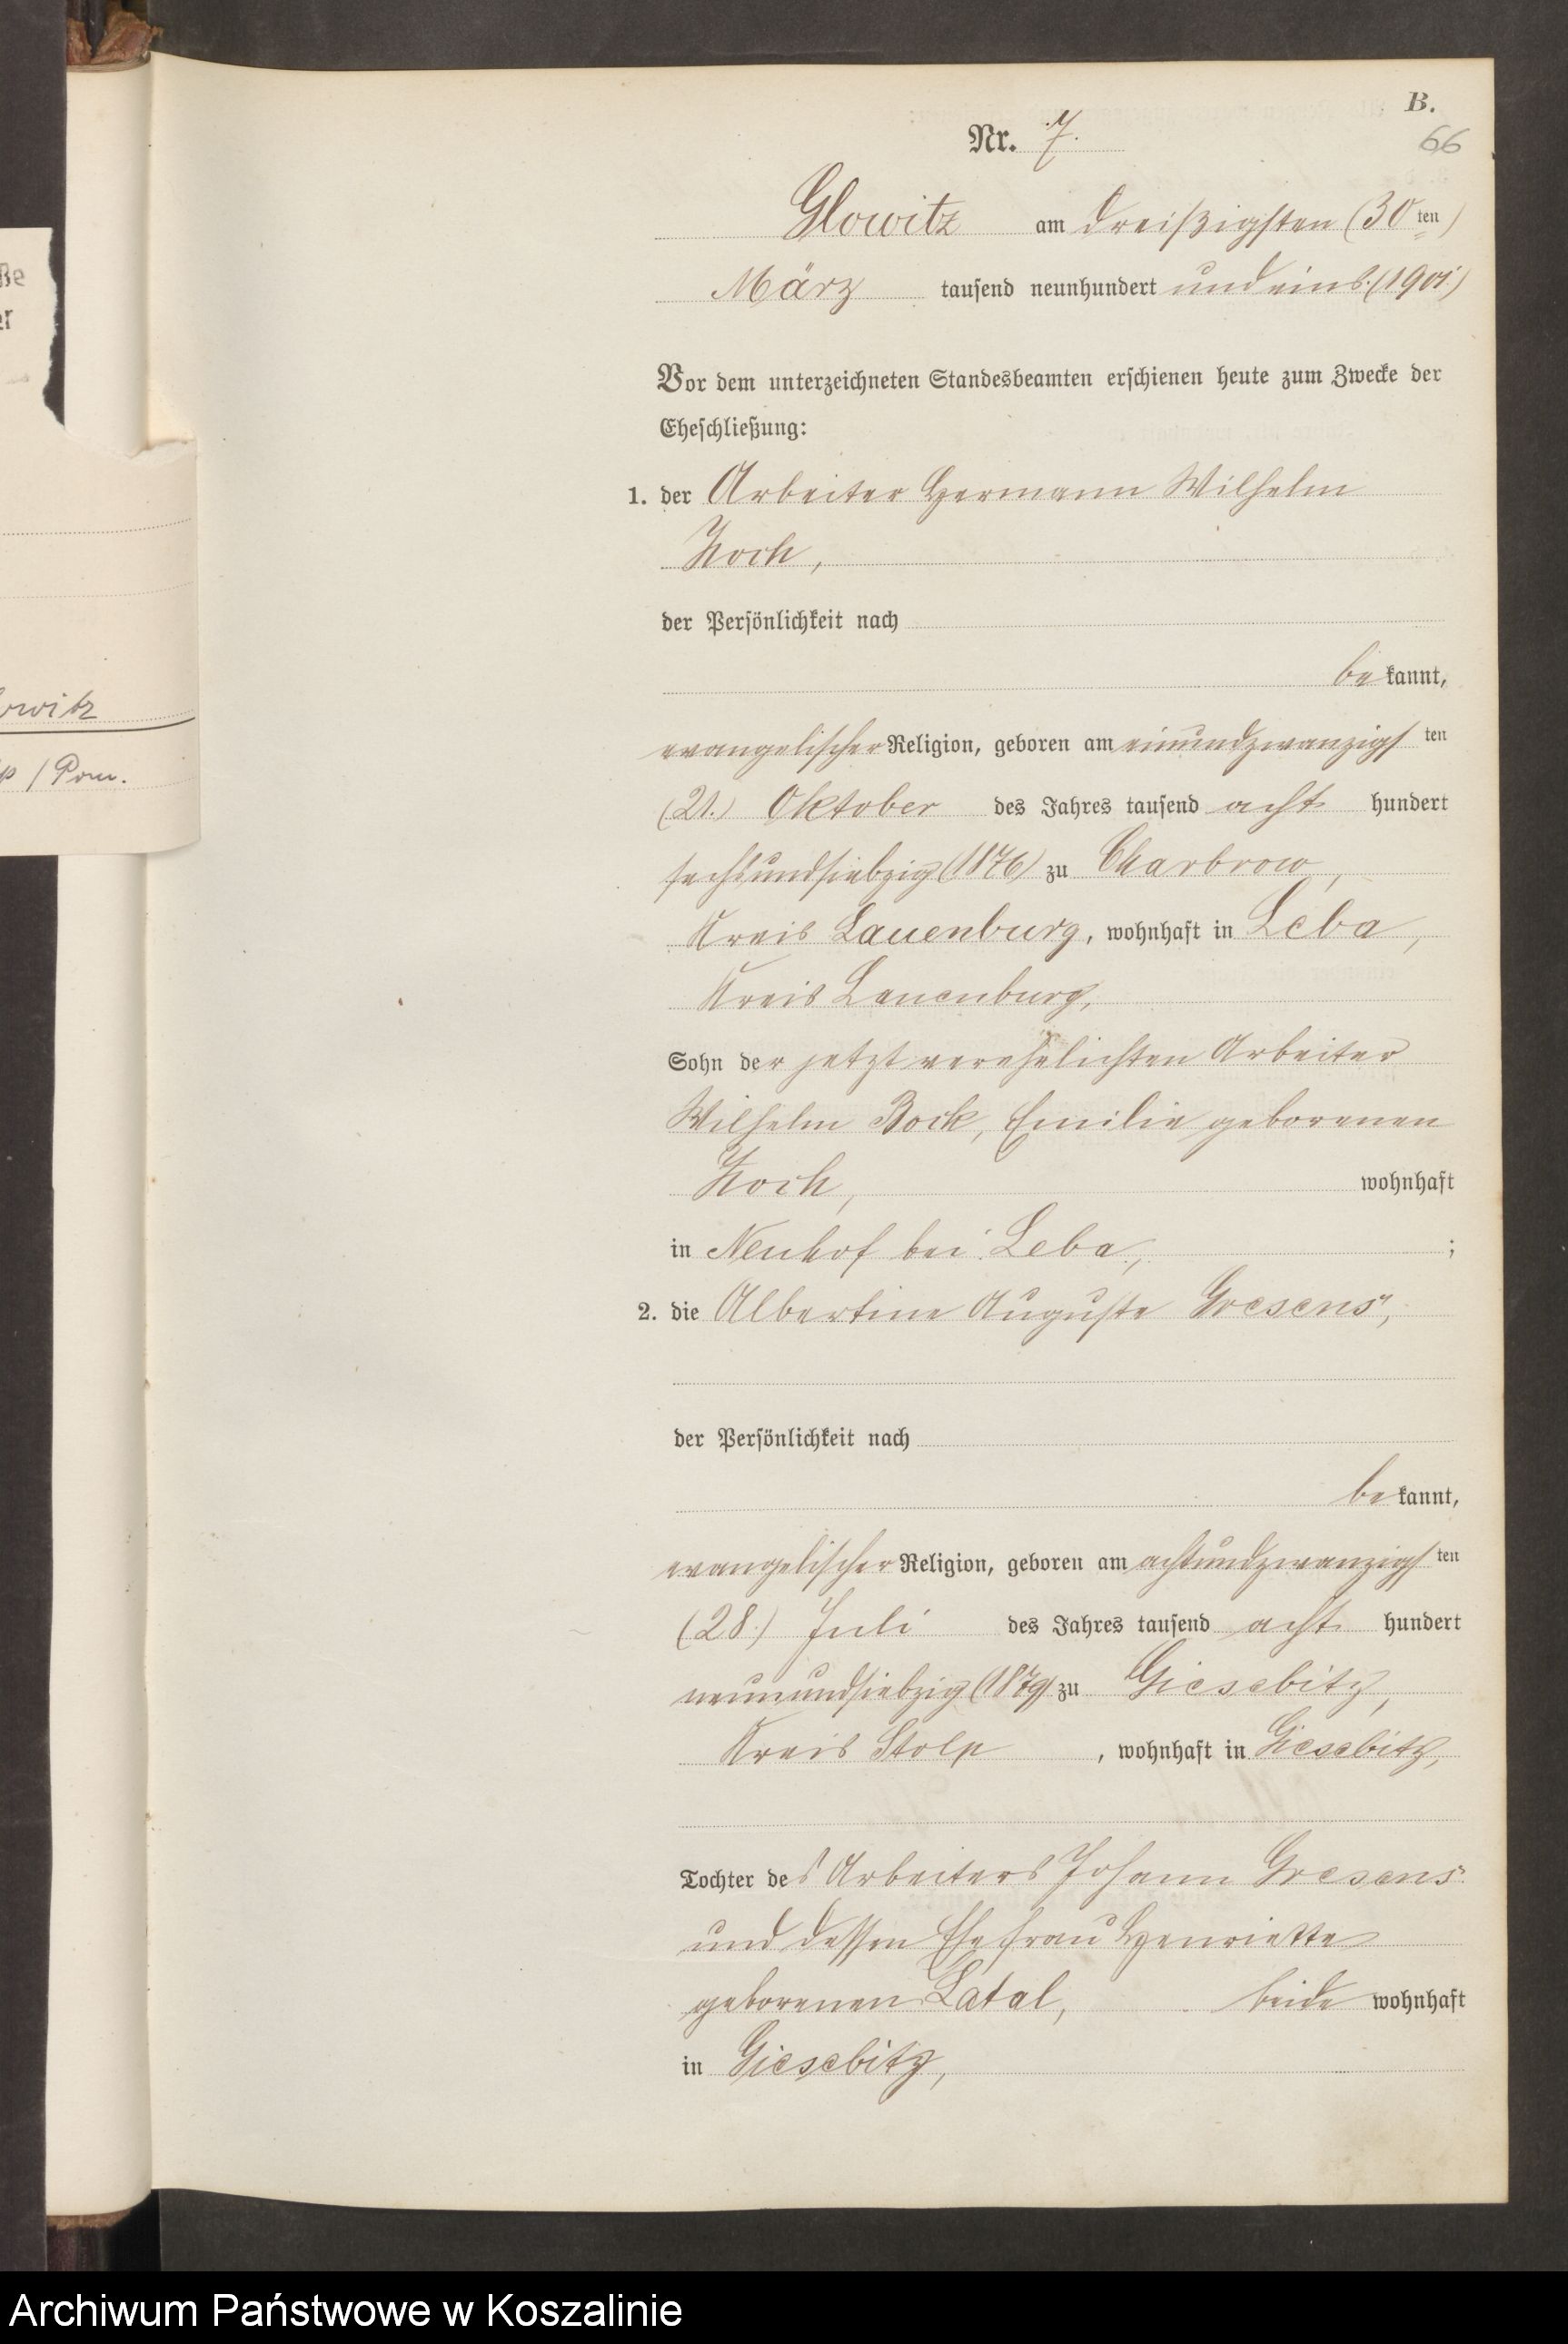 B.
Nr. 7.
66
Glowitz am dreißigsten (30 ten)
März tausend neunhundert und eins. (1901.)
Vor dem unterzeichneten Standesbeamten erschienen heute zum Zwecke der
Eheschließung:
1. der Arbeiter Hermann Wilhelm
Koch,
der Persönlichkeit nach
bekannt,
evangelischer Religion, geboren am einundzwanzigsten
(21.) Oktober des Jahres tausend acht hundert
sechsundsiebzig (1876) zu Charbrow,
Kreis Lauenburg, wohnhaft in Leba,
Kreis Lauenburg,
Sohn der jetzt verehelichten Arbeiter
Wilhelm Bock, Emilie geborenen
Koch, wohnhaft
in Neuhof bei Leba, ;
2. die Albertine Auguste Gresens,
der Persönlichkeit nach
bekannt,
evangelischer Religion, geboren am achtundzwanzigsten
(28.) Juli des Jahres tausend acht hundert
neunundsiebzig (1879) zu Giesebitz,
Kreis Stolp, wohnhaft in Giesebitz,
Tochter des Arbeiters Johann Gresens
und dessen Ehefrau Henriette
geborenen Latal, beide wohnhaft
in Giesebitz,
ße
er
owitz
p / Pom.
Archiwum Państwowe w Koszalinie